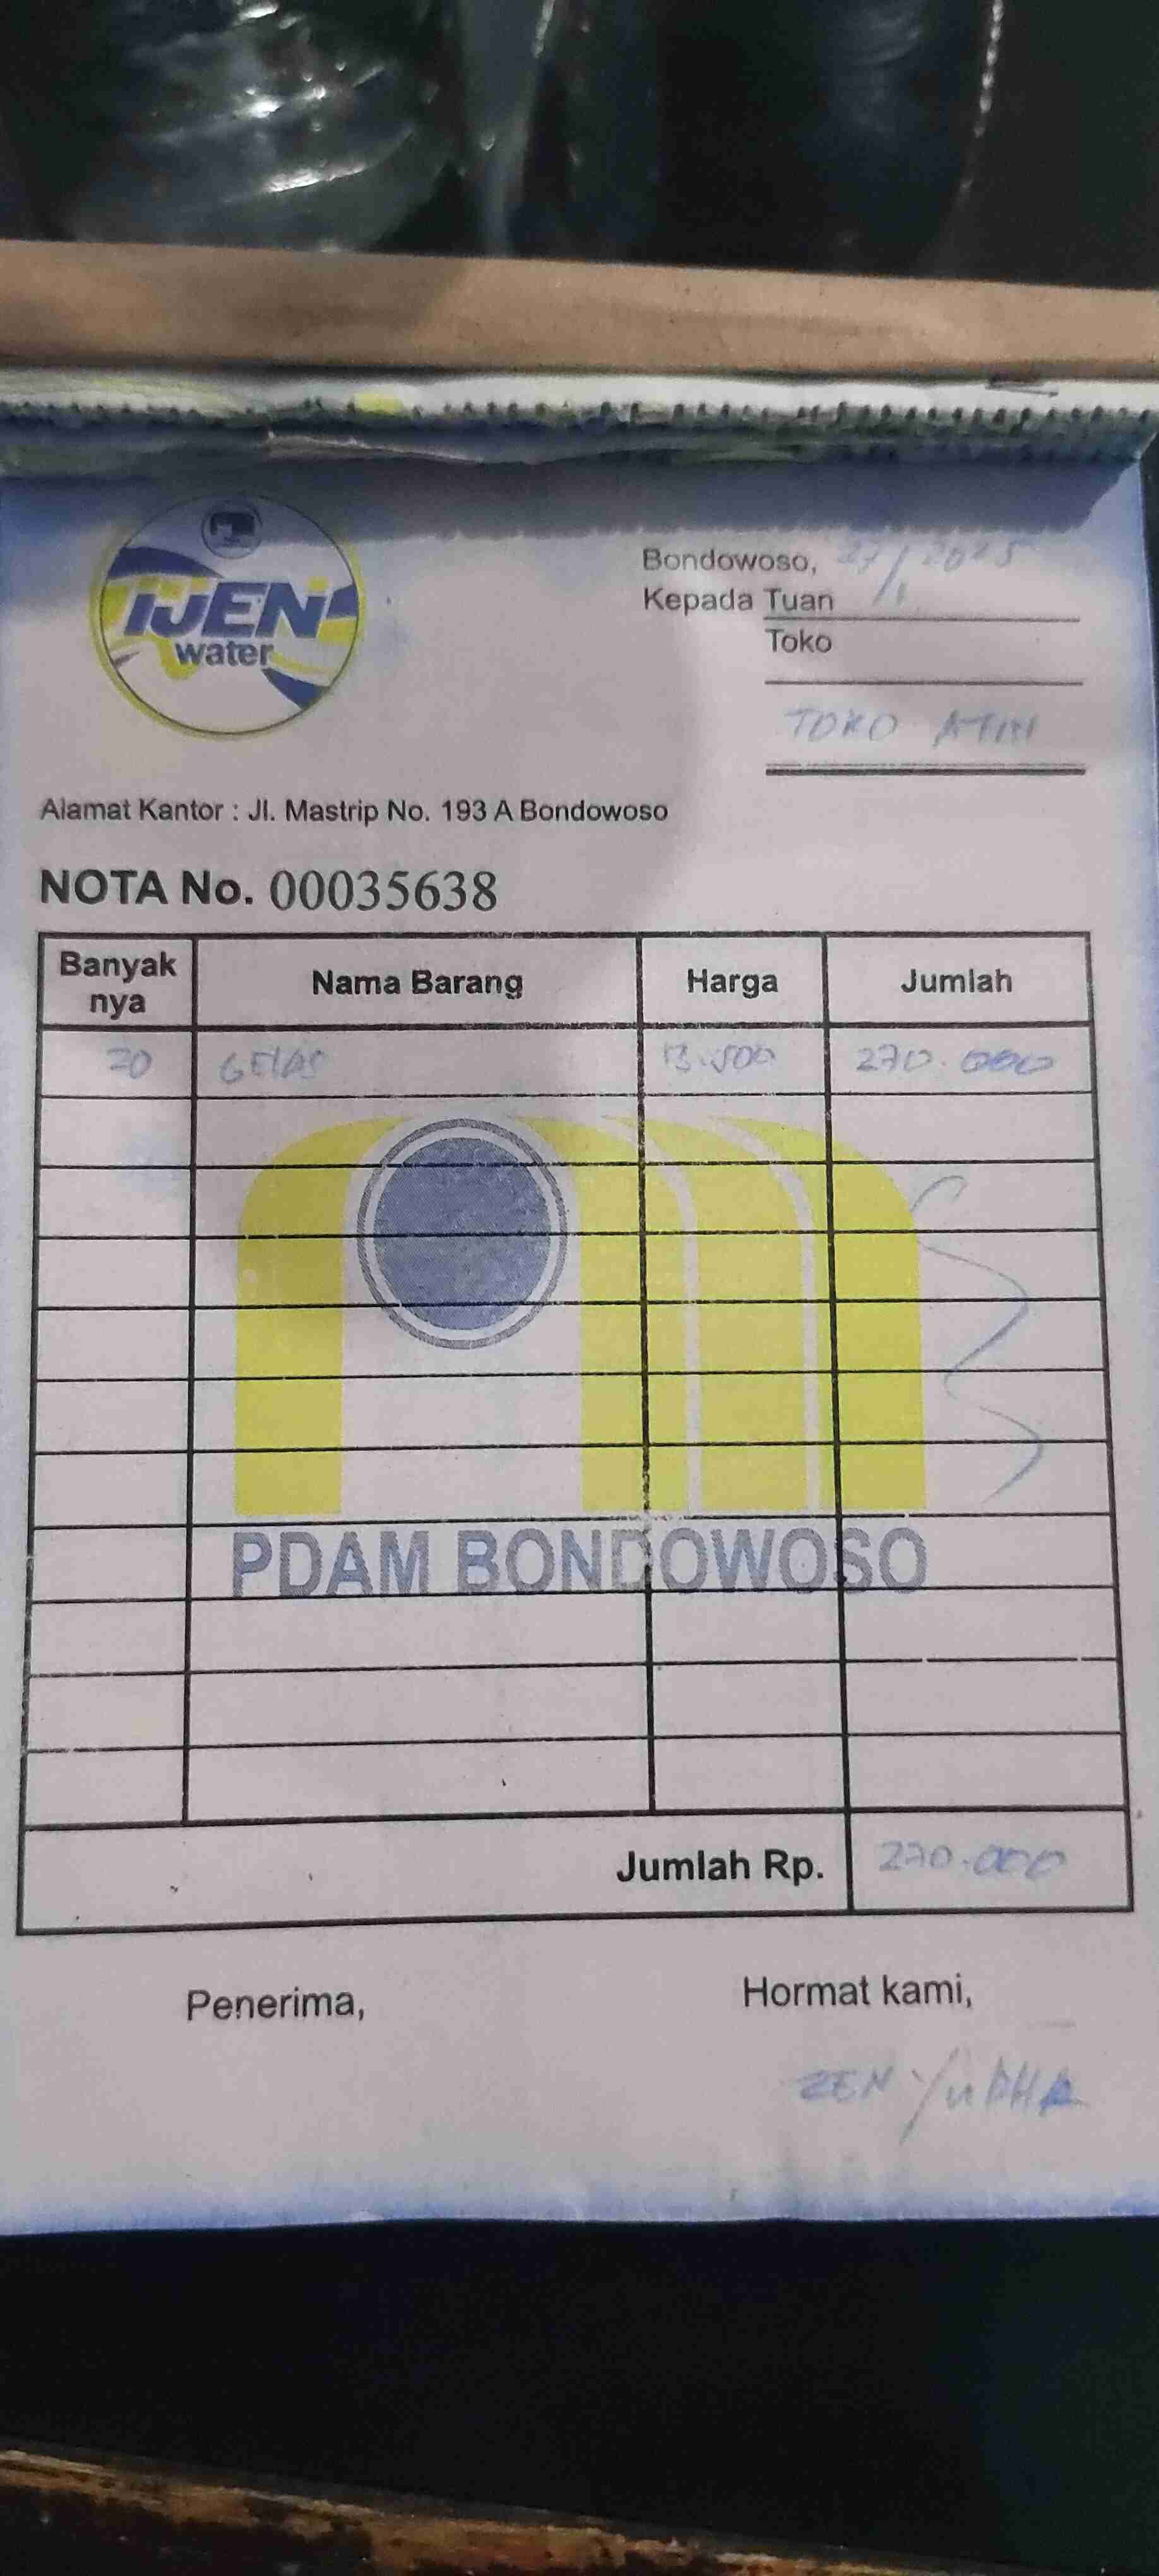 IJEN
water
Bondowoso, 27/1 2025
Kepada Tuan
Toko
TOKO
Alamat Kantor : Jl. Mastrip No. 193 A Bondowoso
NOTA No. 00035638
Banyak nya Nama Barang Harga Jumlah
20 GELAS 13.500 270.000
PDAM BONDOWOSO
Jumlah Rp. 270.000
Penerima, Hormat kami,
ZEN YUDHA